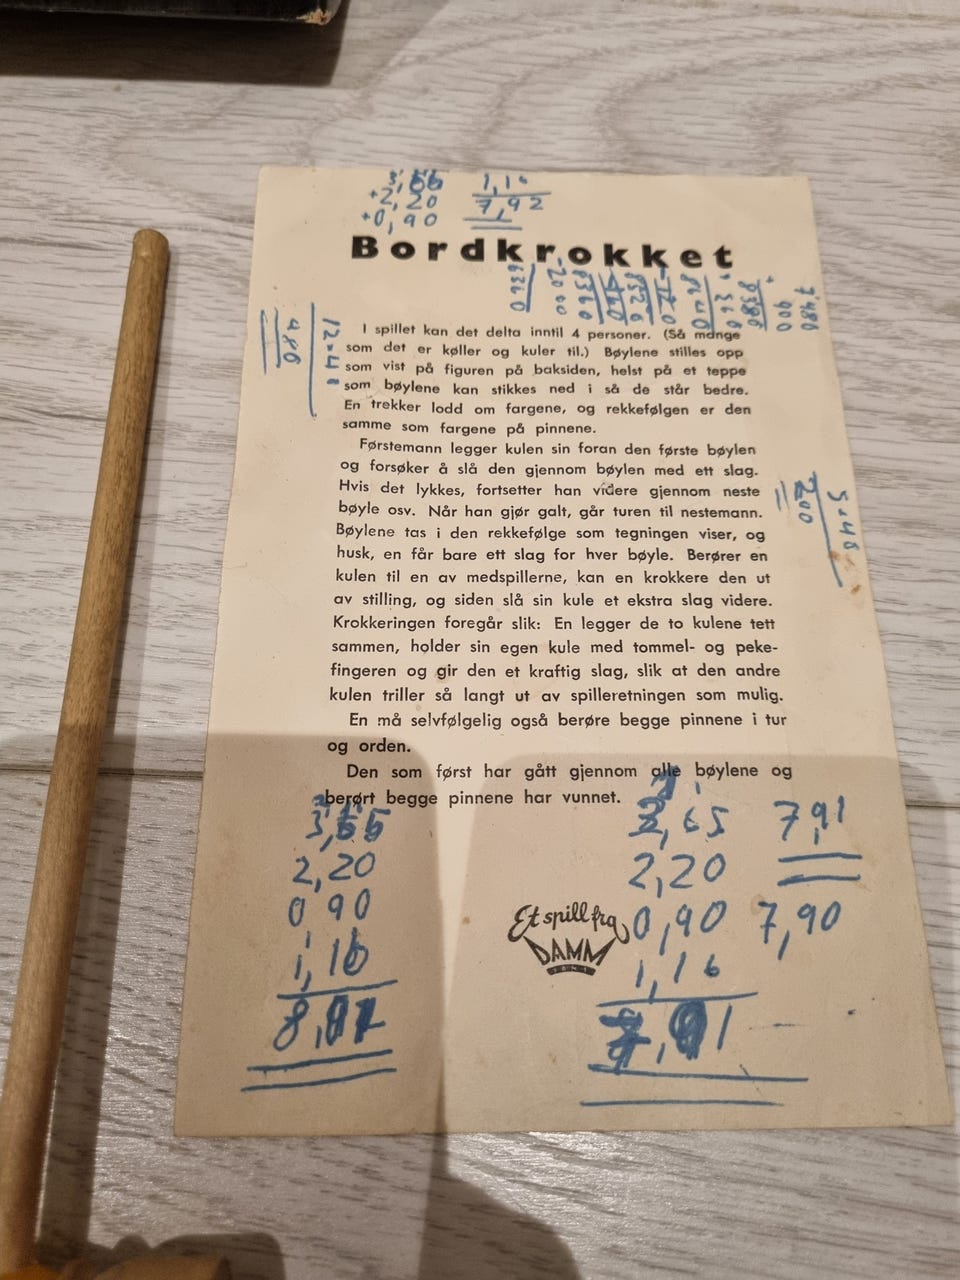 3,66
+2,20
+0,90
1,16
7,92
Bordkrokket
6360
2000
8360
7480
900
8380
I spillet kan det delta inntil 4 personer. (Så mange
som det er køller og kuler til.) Bøylene stilles opp
som vist på figuren på baksiden, helst på et teppe
som bøylene kan stikkes ned i så de står bedre.
En trekker lodd om fargene, og rekkefølgen er den
samme som fargene på pinnene.
Førstemann legger kulen sin foran den første bøylen
og forsøker å slå den gjennom bøylen med ett slag.
Hvis det lykkes, fortsetter han videre gjennom neste
bøyle osv. Når han gjør galt, går turen til nestemann.
Bøylene tas i den rekkefølge som tegningen viser, og
husk, en får bare ett slag for hver bøyle. Berører en
kulen til en av medspillerne, kan en krokkere den ut
av stilling, og siden slå sin kule et ekstra slag videre.
Krokkeringen foregår slik: En legger de to kulene tett
sammen, holder sin egen kule med tommel- og peke-
fingeren og gir den et kraftig slag, slik at den andre
kulen triller så langt ut av spilleretningen som mulig.
En må selvfølgelig også berøre begge pinnene i tur
og orden.
Den som først har gått gjennom alle bøylene og
berørt begge pinnene har vunnet.
12.48
486
5.48
200
2,20
0 90
1,16
2,20
0,90
1,16
7,91
7,90
Et spill fra
DAMM